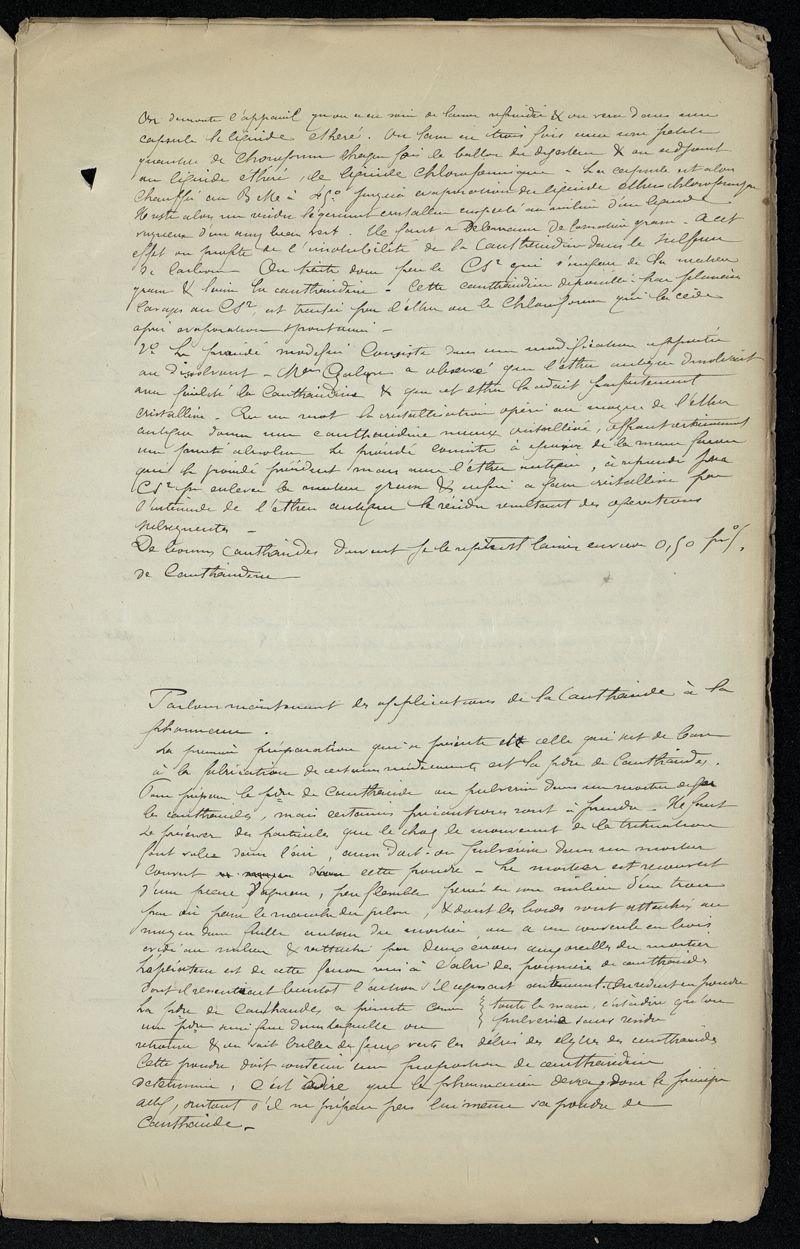 On démonte l'appareil qu'on a eu soin de laisser refroidir & on verse dans une
capsule le liquide etheré. On lave en trois fois avec une petite
quantité de Chloroforme chaque fois le ballon du digesteur & on adjoint
au liquide ethéré, le liquide chloroformique - La capsule est alors
chauffée au B Me à 45° jusqu'à evaporation du liquide ethero chloroformique
Il reste alors un résidu légèrement cristallin empaté au milieu d'un liquide
vert. Il faut se débarrasser de la matière grasse - A cet
effet on profite de l'insolubilité de la Cantharidine dans le sulfure
de Carbone On traite donc par le CS² qui s'empare de la matière
grasse & laisse la cantharidine - Cette cantharidine dépouillée par plusieurs
lavages au CS², est traitée par l'éther ou le Chloroforme qui la cède
après evaporation spontanée -
2° Le procédé modifié Consiste dans une modification apportée
au dissolvant - Mr Galippe a observé que l'éther acétique dissolvait
avec facilité la Cantharidine & que cet ether la cédait parfaitement
cristallisée - En un mot la cristallisation opérée au moyen de l'éther
acétique donne une cantharidine mieux cristallisée,
une pureté absolue. Le procédé consiste à epuiser de la meme facon
que le procédé précédent mais avec l'éther acétique, à reprendre par
CS² pr enlever la matière grasse & enfin a faire cristalliser par
l'intermede de l'éther acétique le résidu resultant des opérations
subsequentes -
De bonnes Cantharides doivent je le repète laisser environ 0,50 pr %
de Cantharidine -
Parlons maintenant des applications de la Cantharide à la
pharmacie.
La première préparation qui se présente & celle qui sert de base
à la fabrication de certains médicaments est la pdre de Cantharides.
Pour préparer la pdre de Cantharide on pulverise dans un mortier de fer
les cantharides, mais certaines précautions sont à prendre - Il faut
se préserver des particules que le choc le mouvement de la trituration
font voler dans l'air, aussi doit-on pulvériser dans un mortier
couvert cette poudre - Le mortier est recouvert
d'une peau d'agneau, peu flexible percée en son milieu d'un trou
par où passe le manche du pilon, & dont les bords sont attachés au
moyen d'une ficelle autour du mortier ou a un couvercle en bois
evidé au milieu & rattaché par deux aux oreilles du mortier
L'opérateur est de cette facon mis à l'abri des poussières de cantharides
dont il ressentirait bientot l'action s'il agissait autrement. On réduit en poudre
La pdre de Cantharides se présente comme toute la masse, c'est à dire qu'on
une pdre dans laquelle on pulverise sans residu
retrouve & on voit briller des feux verts les débris des elytres des cantharides
Cette poudre doit contenir une proportion de cantharidine
determinée, c'est à dire que le pharmacien devra doser le principe
actif, surtout s'il ne prépare pas lui même sa poudre de
Cantharide. -